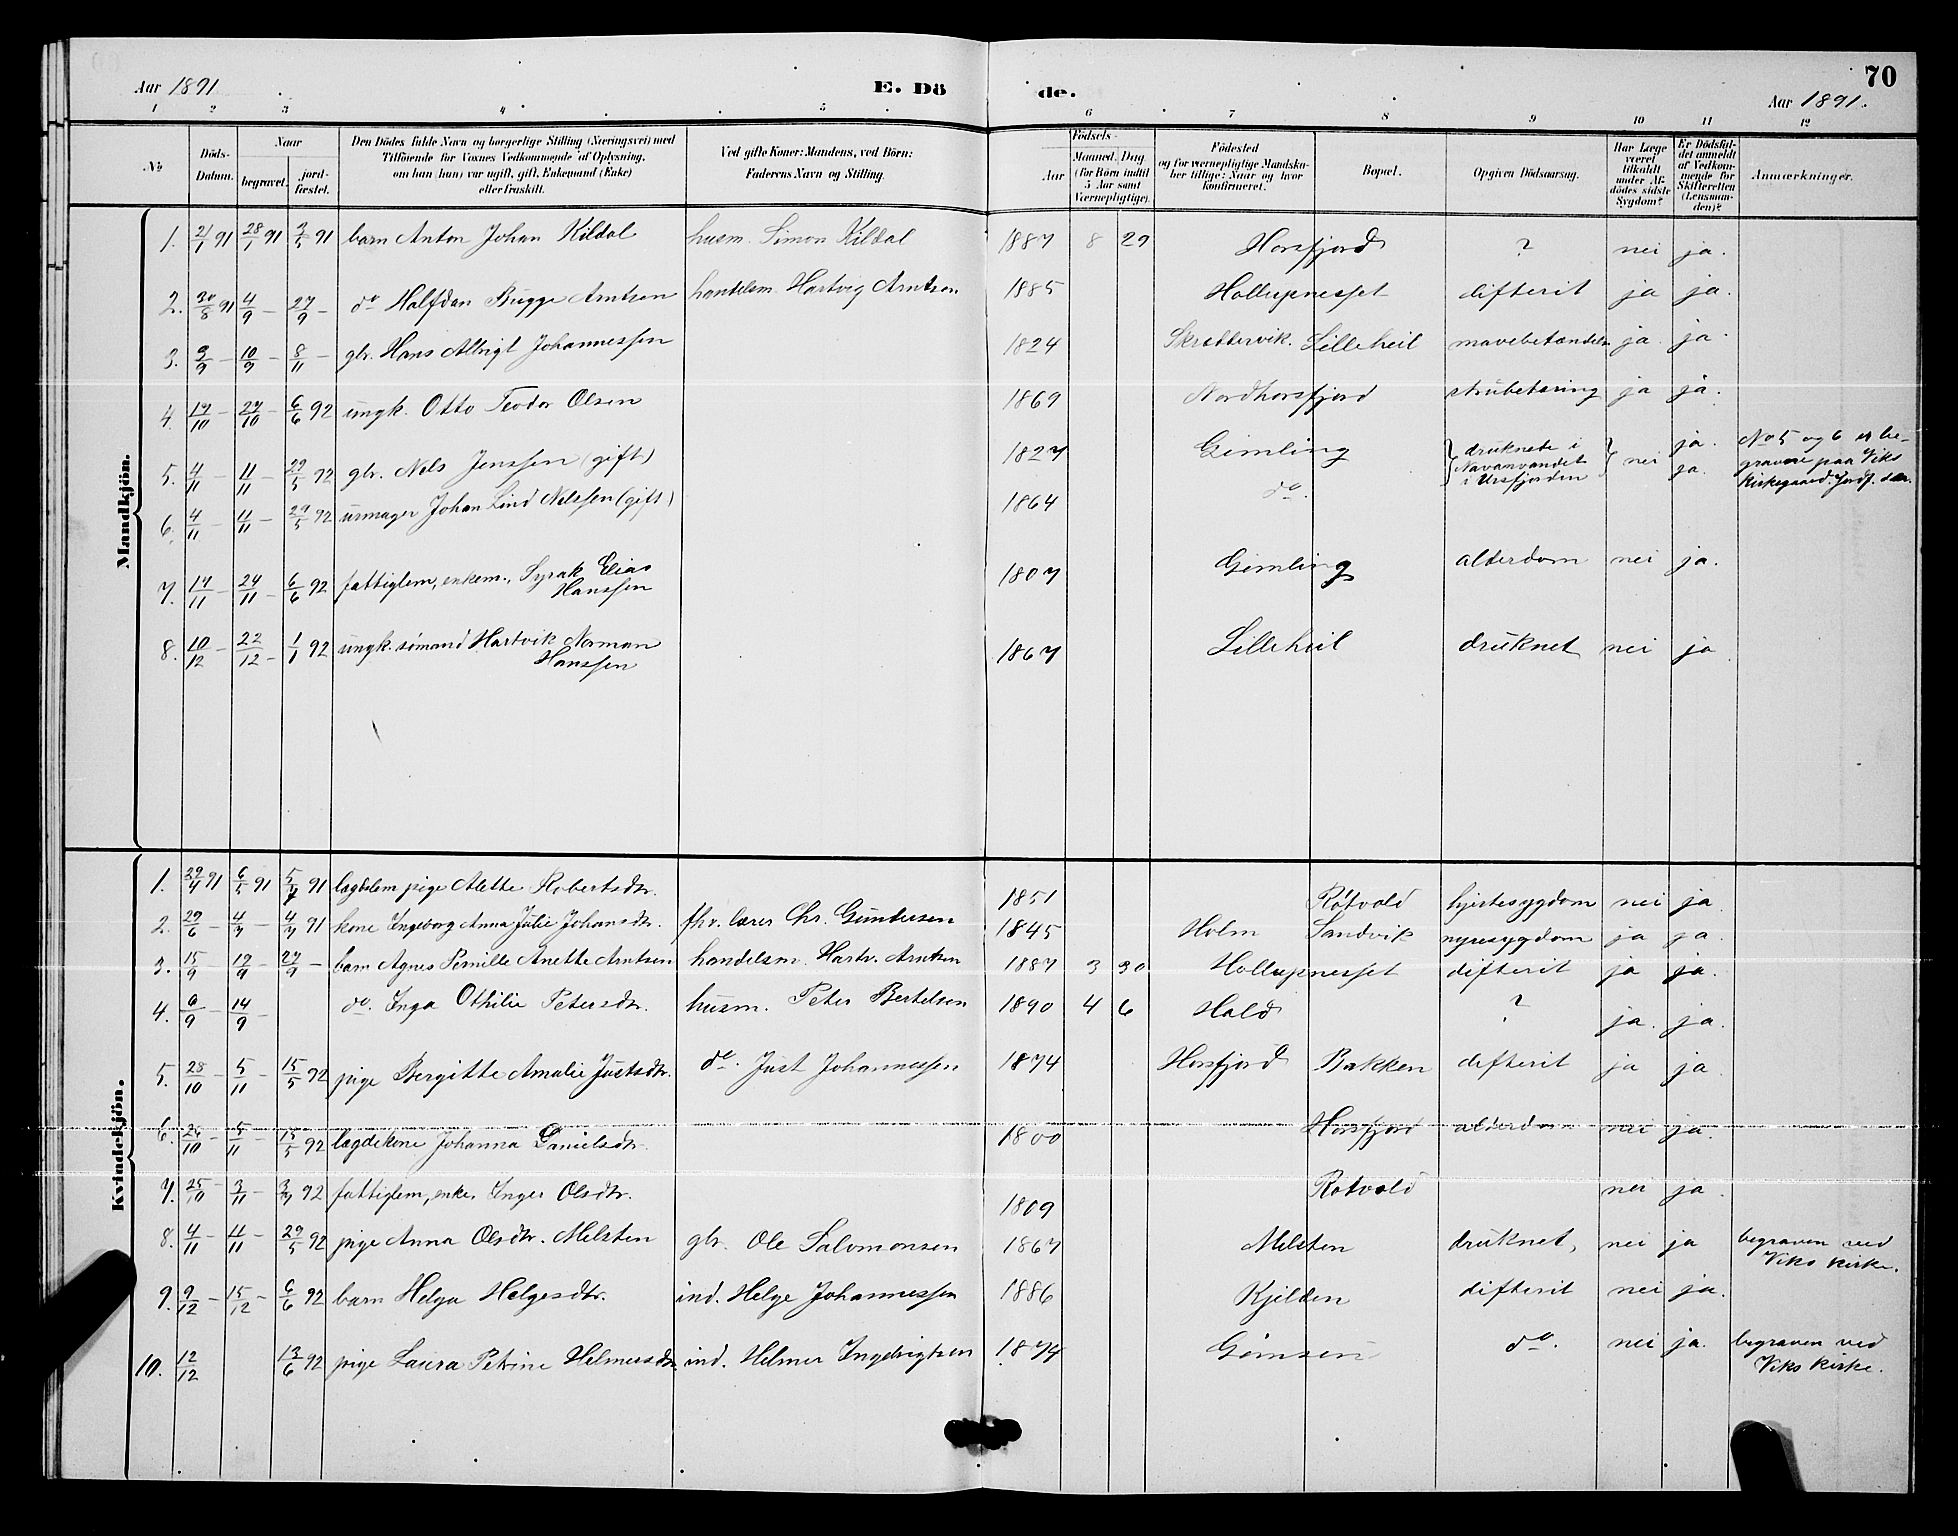 70
Aar 1891
E. Dö de.
Aar 1891.
1 2 3 4 5 6 7 8 9 10 11 12
No
Döds-Datum.
Naar
begravet.
jord-fæstet.
Den Dödes fulde Navn og borgerlige Stilling (Næringsvei) med
Tilföiende for Voxnes Vedkommende af Oplysning,
om han (hun) var ugift, gift, Enkemand (Enke)
eller fraskilt.
Ved gifte Koner: Mandens, ved Börn:
Faderens Navn og Stilling.
Födsels-
Aar
Maaned. Dag
(for Börn indtil
5 Aar samt
Værnepligtige).
Födested
og for værnepligtige Mandska-
ber tillige: Naar og hvor
konfirmeret.
Bopæl.
Opgiven Dödsaarsag.
Har Læge
været
tilkaldt
under Af-
dödes sidste
Sygdom?
Er Dödsfal-
det anmeldt
af Vedkom-
mende for
Skifteretten
(Lensman-
den)?
Anmærkninger.
Mandkjön.
1. 21/1 91 28/1 91 3/5 91 barn Anton Johan Kildal husm. Simon Kildal 1887 8 29 Horsfjord ? nei ja.
2. 30/8 91 4/9 - 27/9 - do Halfdan Bugge Arntsen handelsm. Hartvig Arntsen 1885 Hollupnesset difterit ja ja.
3. 9/9 - 10/9 - 8/11 - gbr. Hans Albrigt Johannessen 1824 Skrottervik. Lilleheil mavebetændelse ja ja.
4. 17/10 - 27/10 - 6/6 92 ungk. Otto Teodor Olsen 1869 Nordhorsfjord strubetæring ja ja.
5. 4/11 - 11/11 - 29/5 92 gbr. Nels Jenssen (gift) 1827 Gimling druknede i nei ja. No 5 og 6 er be-
i Ursfjorden gravne paa Viks
Kirkegaard. Jordf. der.
6. 4/11 - 11/11 - 29/5 92 urmager Johan Lind Nelssen (gift) 1864 do. ja.
7. 17/11 - 24/11 - 6/6 92 fattiglem, enkem., Syrak Elias
Hanssen 1807 Gimling alderdom nei ja.
8. 10/12 - 22/12 - 1/1 92 ungk. sömand Hartvik Norman
Hanssen 1867 Lilleheil druknet nei ja
Kvindekjön.
1. 29/4 91 6/5 91 5/7 91 lægdslem pige Alette Robertsdtr. 1851 Røtvold hjertesygdom nei ja
2. 29/6 - 4/7 - 4/7 91 kone Ingeborg Anna Julie Johansdtr. fhv. lærer Chr. Gundersen 1845 Holm Sandvik nyresygdom ja ja.
3. 15/9 - 19/9 - 27/9 - barn Agnes Pernille Anette Arntsen handelsm. Hartv. Arntsen 1887 3 30 Hollupnesset difterit ja ja.
4. 6/9 - 14/9 - do. Inga Othilie Petersdtr. husm. Peter Bertelsen 1890 4 6 Hald ? ja. ja.
5. 28/10 - 5/11 - 15/5 92 pige Bergitte Amalie Justsdtr. do. Just Johannessen 1874 Horsfjord Bakken difterit ja ja
6. 26/10 - 5/11 - 15/5 92 lægdekone Johanna Danielsdtr. 1800 Horsfjord alderdom nei ja.
7. 25/10 - 3/11 - 3/7 92 fattiglem, enke, Inger Olsdtr. 1809 Røtvold nei ja.
8. 4/11 - 11/11 - 29/5 92 pige Anna Olsdtr. Melsten gbr. Ole Salomonsen 1867 Melsten druknet, nei ja begraven ved
Viks kirke.
9. 9/12 - 15/12 - 6/6 92 barn Helga Helgesdtr. ind. Helge Johannessen 1886 Kjelden difterit nei ja.
10. 12/12 13/6 92 pige Laura Petrine Helmersdtr. ind. Helmer Ingebrigtsen 1874 Gimsen do. nei ja. begraven ved
Viks kirke.